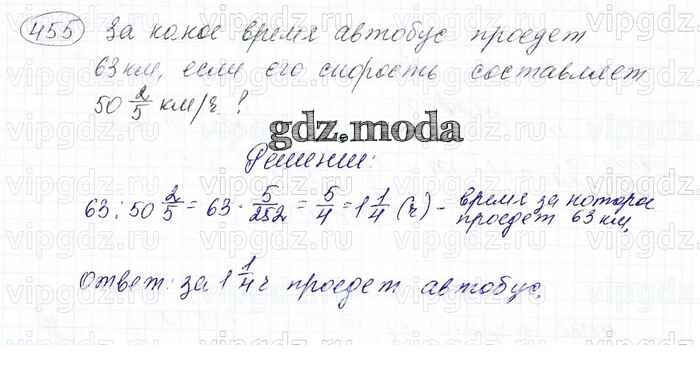 455 За какое время автобус проедет
63 км, если его скорость составляет
50 2/5 км/ч ?
gdz.moda
Решение:
63 : 50 2/5 = 63 · 5/252 = 5/4 = 1 1/4 (ч) - время за которое
проедет 63 км.
Ответ: за 1 1/4 ч проедет автобус.
vipgdz